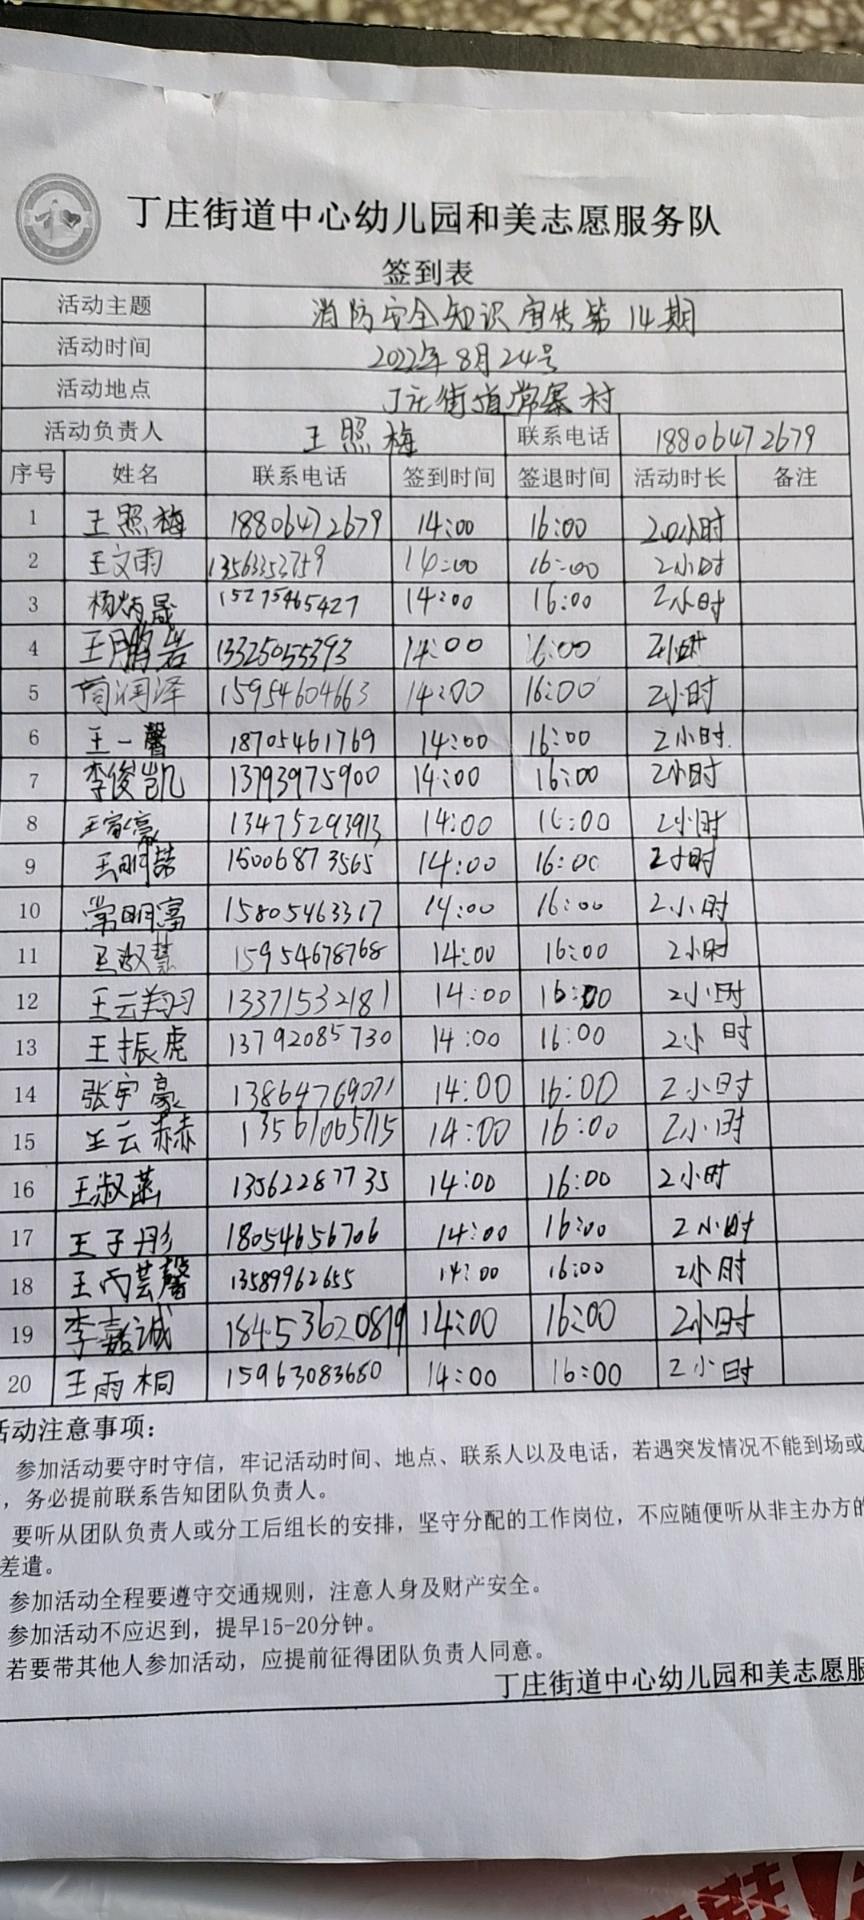 丁庄街道中心幼儿园和美志愿服务队
签到表
活动主题 消防安全知识宣传第14期
活动时间 2022年8月24号
活动地点 丁庄街道常寨村
活动负责人 王照梅 联系电话 18806472679
序号 姓名 联系电话 签到时间 签退时间 活动时长 备注
1 王照梅 18806472679 14:00 16:00 2.0小时
2 王文雨 13563352759 14:00 16:00 2小时
3 杨炳晟 15275465427 14:00 16:00 2小时
4 王鹏岩 13325055393 14:00 16:00 2小时
5 润泽 15954604663 14:00 16:00 2小时
6 王一馨 18705461769 14:00 16:00 2小时
7 李俊凯 13793975900 14:00 16:00 2小时
8 王家豪 13475293913 14:00 16:00 2小时
9 15006873565 14:00 16:00 2小时
10 常明富 15805463317 14:00 16:00 2小时
11 王淑慧 15954678768 14:00 16:00 2小时
12 王云翔 13371532181 14:00 16:00 2小时
13 王振虎 13792085730 14:00 16:00 2小时
14 张宇豪 13864769071 14:00 16:00 2小时
15 王云赫 13561065715 14:00 16:00 2小时
16 王淑菡 13562287735 14:00 16:00 2小时
17 王子彤 18054656706 14:00 16:00 2小时
18 王芮芸馨 13589962655 14:00 16:00 2小时
19 李嘉诚 18453620819 14:00 16:00 2小时
20 王雨桐 15963083680 14:00 16:00 2小时
活动注意事项：
参加活动要守时守信，牢记活动时间、地点、联系人以及电话，若遇突发情况不能到场或
，务必提前联系告知团队负责人。
要听从团队负责人或分工后组长的安排，坚守分配的工作岗位，不应随便听从非主办方的
差遣。
参加活动全程要遵守交通规则，注意人身及财产安全。
参加活动不应迟到，提早15-20分钟。
若要带其他人参加活动，应提前征得团队负责人同意。
丁庄街道中心幼儿园和美志愿服